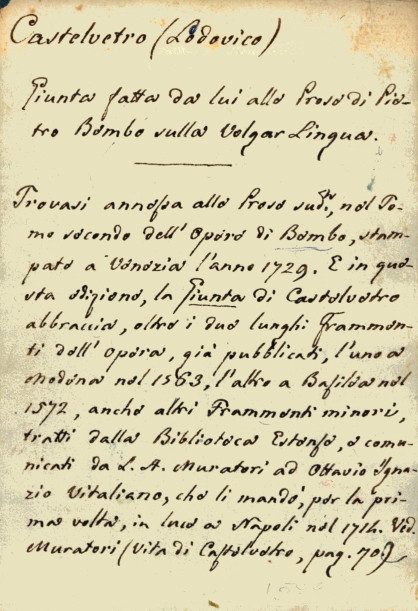 Castelvetro (Lodovico)
Giunta fatta da lui alle Prose di Pie-
tro Bembo sulla Volgar Lingua.
Trovasi annessa alle Prose sudde, nel To-
mo secondo dell' Opere di Bembo, stam-
pate a Venezia l'anno 1729. E in que-
sta edizione, la Giunta di Castelvetro
abbraccia, oltre i due lunghi Frammen-
ti dell' Opera, già pubblicati, l'uno a
Modena nel 1563, l'altro a Basilea nel
1572, anche altri Frammenti minori,
tratti dalla Biblioteca Estense, e comu-
nicati da L. A. Muratori ad Ottavio Igna-
zio Vitaliano, che li mandò, per la pri-
ma volta, in luce a Napoli nel 1714. Ved.
Muratori (Vita di Castelvetro, pag. 70.)